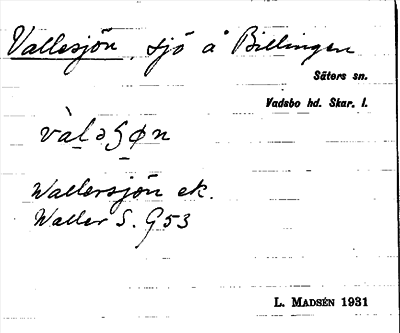 Vallesjön, sjö å Billingen
Säters sn.
Vadsbo hd. Skar. l.
vàləʂøn
Wallersjön ek.
Waller S. G53
L. MADSÉN 1931